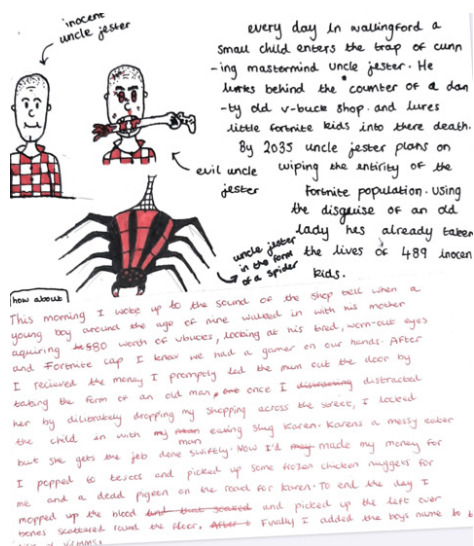 inocent
uncle jester
every day in wallingford a
small child enters the trap of cunn
-ing mastermind uncle jester. He
lurks behind the counter of a dan
-ty old v-buck shop. and lures
little fortnite kids into there death.
By 2035 uncle jester plans on
wiping the entirity of the
fortnite population. Using
the disguise of an old
lady hes already taken
the lives of 489 inocen
kids.
evil uncle
jester
uncle jester
in the form
of a spider
how about
This morning I woke up to the sound of the shop bell when a
young boy around the age of nine walked in with his mother
aquiring $80 worth of vbuces, looking at his tired, worn-out eyes
and Fortnite cap I knew we had a gamer on our hands. After
I recieved the money I promptly led the mum out the door by
taking the form of an old man, once I distracted
her by dilibrately dropping my shopping across the street, I locked
the child in with my man eating slug Karen. Karens a messy eater
but she gets the job done swiftly. Now I'd made my money for
I popped to tescos and picked up some frozen chicken nuggets for
me and a dead pigeon on the road for Karen. To end the day I
mopped up the blood and picked up the left over
bones scattered round the floor. Finally I added the boys name to
victims.